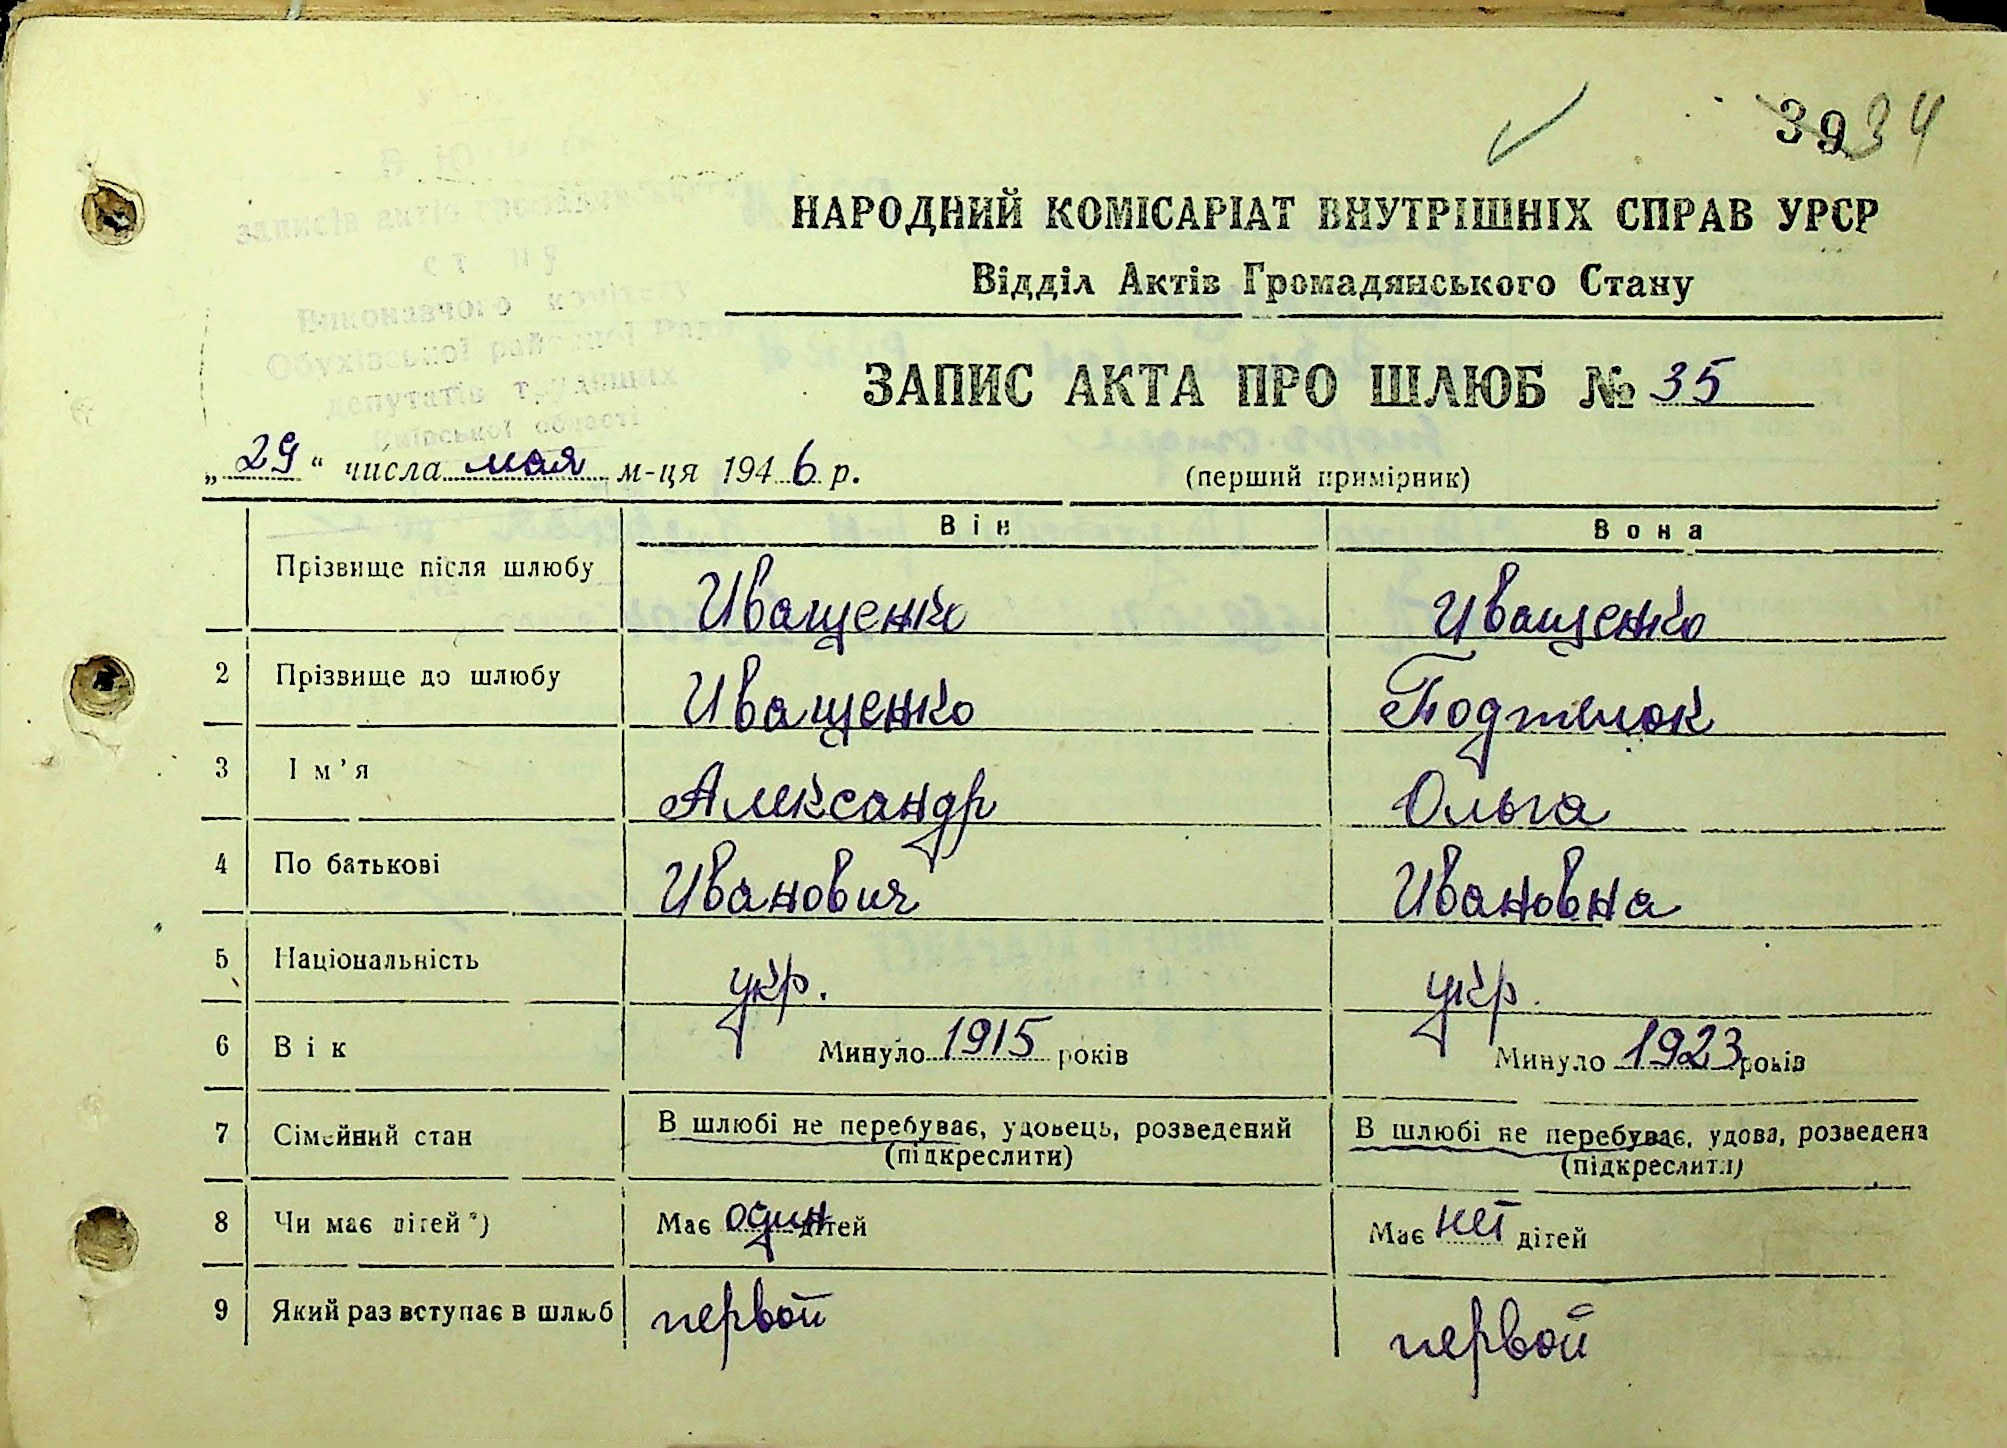 39 34
НАРОДНИЙ КОМІСАРІАТ ВНУТРІШНІХ СПРАВ УРСР
Відділ Актів Громадянського Стану
ЗАПИС АКТА ПРО ШЛЮБ № 35
„29“ числа мая м-ця 1946 р. (перший примірник)
Він Вона
Прізвище після шлюбу Иващенко Иващенко
2 Прізвище до шлюбу Иващенко
3 Ім'я Александр Ольга
4 По батькові Иванович Ивановна
5 Національність укр. укр.
6 Вік Минуло 1915 років Минуло 1923 років
7 Сімейний стан В шлюбі не перебуває, удовець, розведений В шлюбі не перебуває, удова, розведена
(підкреслити) (підкреслити)
8 Чи має дітей*) Має один дітей Має нет дітей
9 Який раз вступає в шлюб первой первой
записів актів громадянського
стану
Виконавчого комітету
Обухівської районної Ради
депутатів трудящих
Київської області